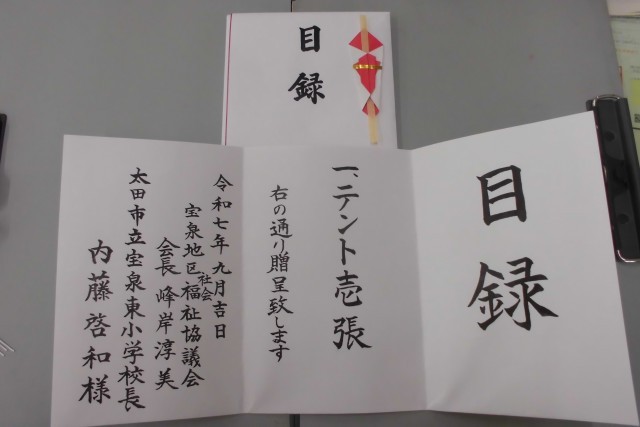 目録
目録
一、テント壱張
右の通り贈呈致します
令和七年九月吉日
宝泉地区社会福祉協議会
会長 峰岸淳美
太田市立宝泉東小学校長
内藤啓和様